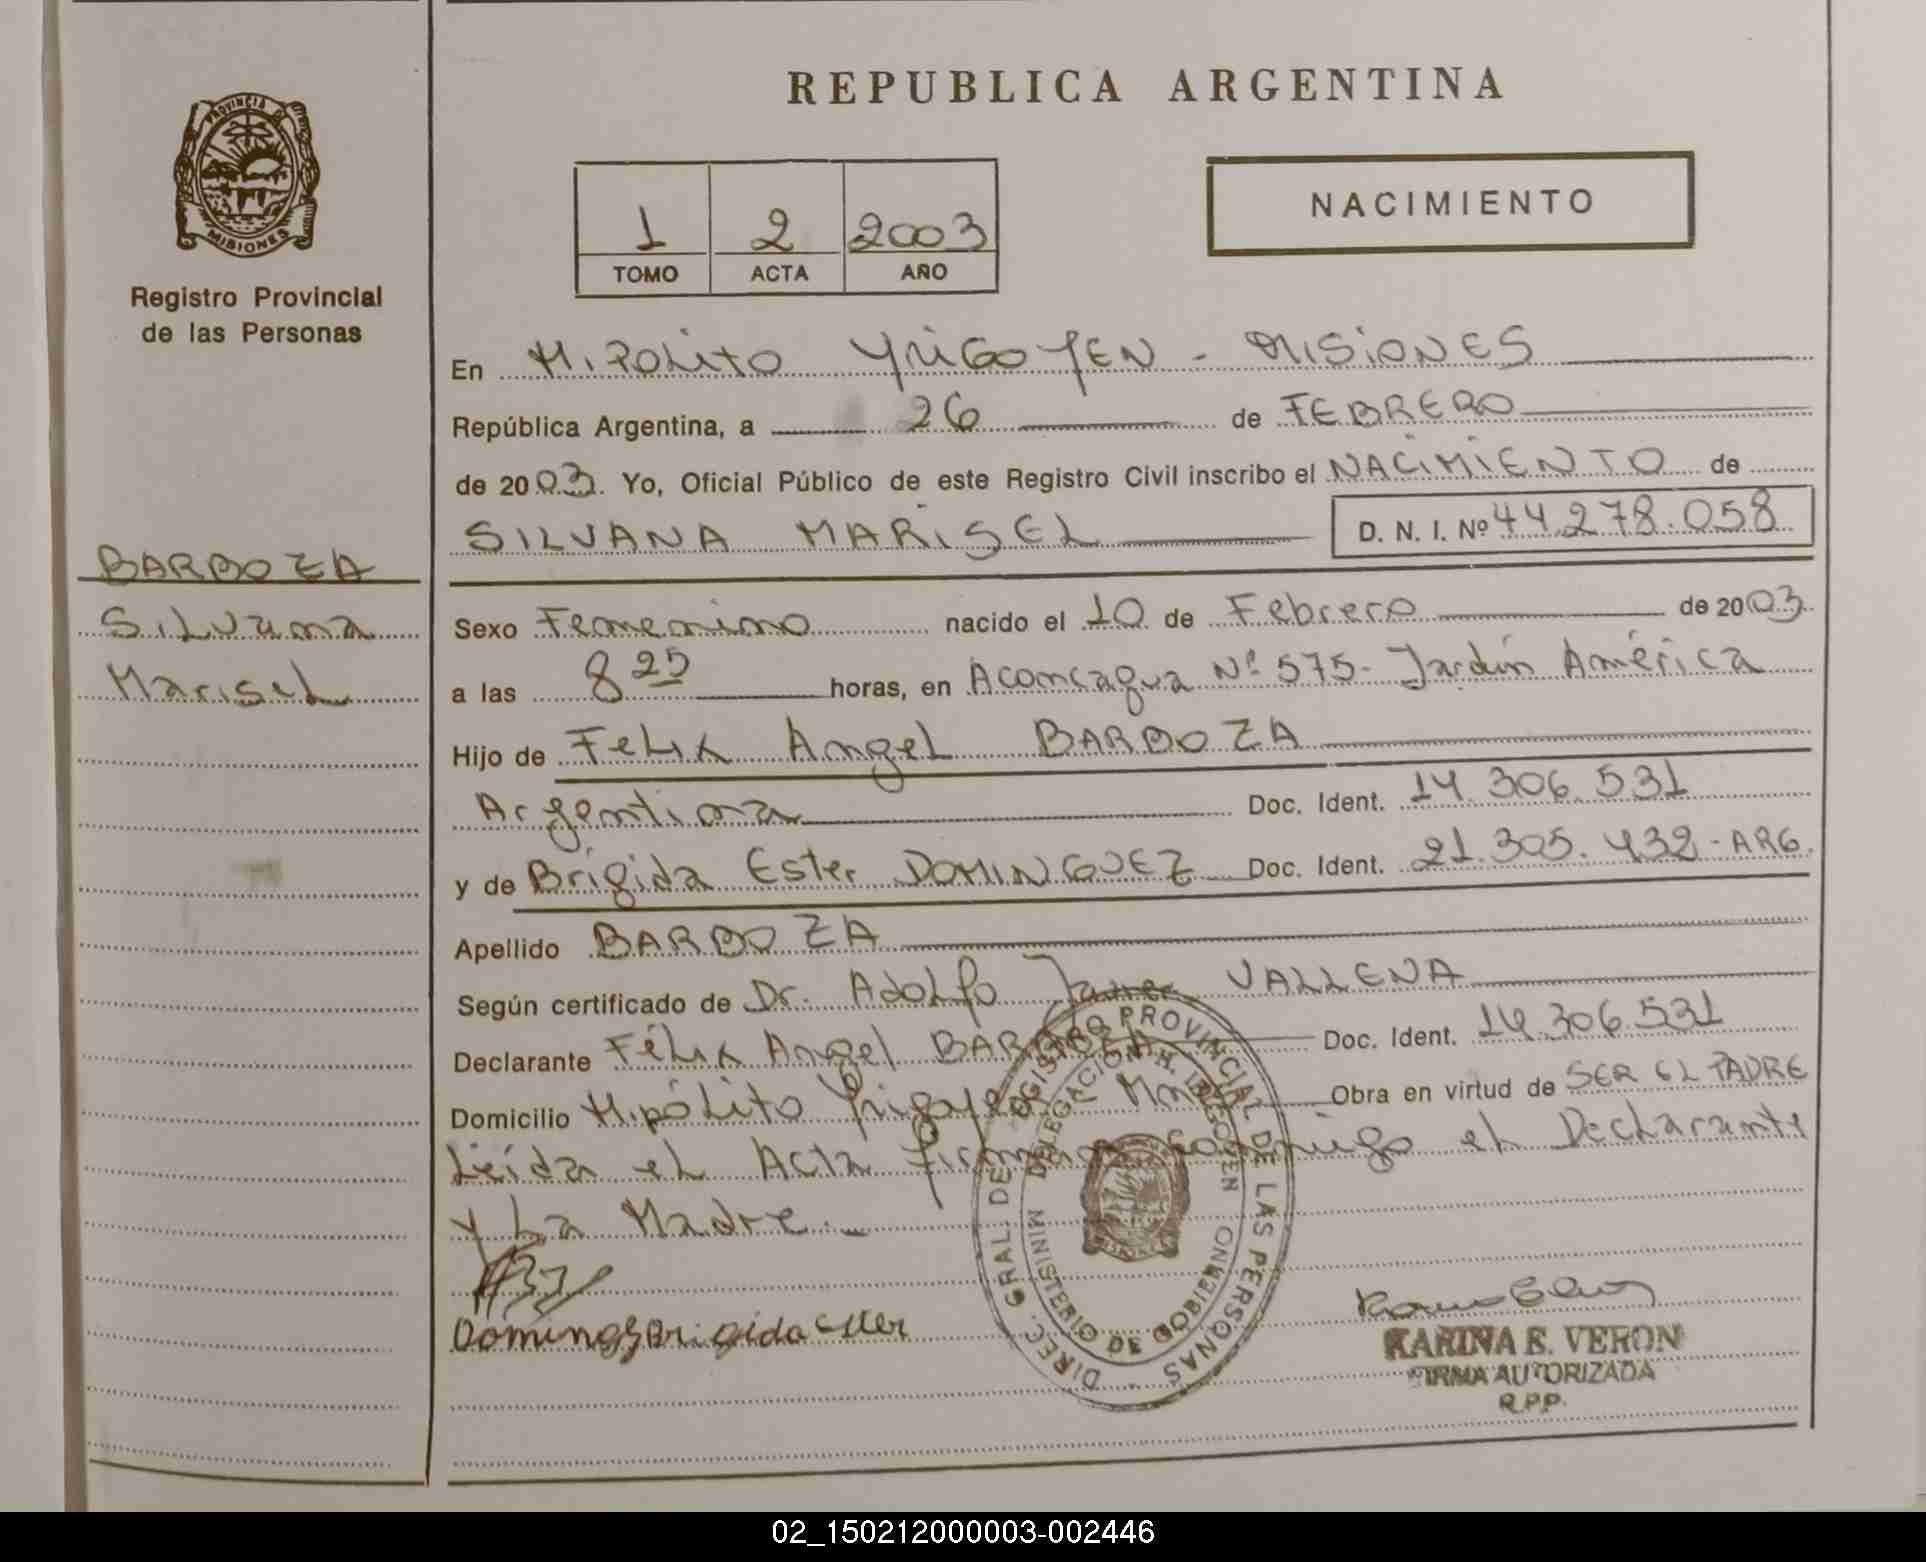 REPUBLICA ARGENTINA
PROVINCIA DE
MISIONES
Registro Provincial
de las Personas
1 2 2003
TOMO ACTA AÑO
NACIMIENTO
En Hipolito Yrigoyen - Misiones
República Argentina, a 26 de FEBRERO
de 2003. Yo, Oficial Público de este Registro Civil inscribo el NACIMIENTO de
SILVANA MARISEL D. N. I. Nº 44.278.058
BARBOZA
Silvana
Marisel
Sexo Femenino nacido el 10 de Febrero de 2003
a las 8 25 horas, en Aconcagua Nº 575- Jardín América
Hijo de Felix Angel BARBOZA
Argentina Doc. Ident. 14.306.531
y de Brígida Ester DOMINGUEZ Doc. Ident. 21.305.432-ARG.
Apellido BARBOZA
Según certificado de Dr. Adolfo Javier VALLENA
Declarante Félix Angel BARBOZA Doc. Ident. 14.306.531
Domicilio Hipólito Yrigoyen Mnes Obra en virtud de SER EL PADRE
Leída el Acta firman conmigo el Declarante
y La Madre.
DIREC. GRAL. DEL REGISTRO PROVINCIAL DE LAS PERSONAS
DELEGACION H. IRIGOYEN
MINISTERIO DE GOBIERNO
Brigida Ester
KARINA E. VERON
FIRMA AUTORIZADA
R.P.P.
02_150212000003-002446